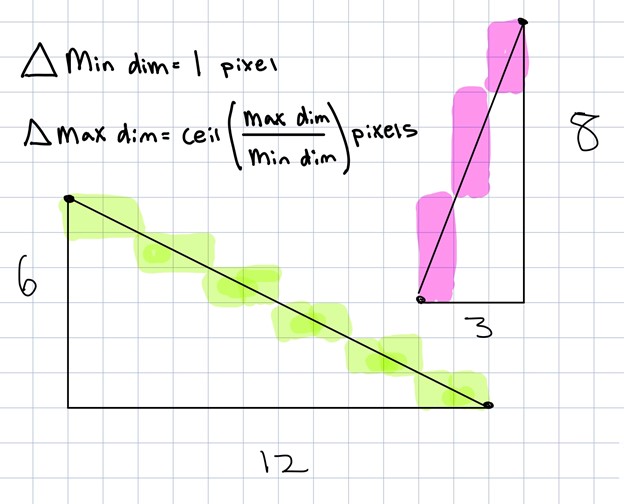 △ Min dim = 1 pixel
△ Max dim = ceil (max dim / Min dim) pixels
8
6
3
12